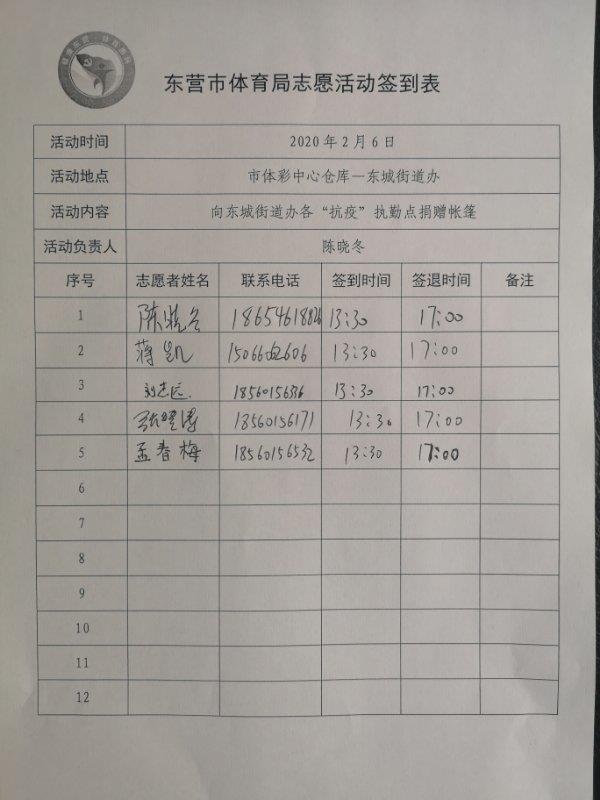 东营市体育局志愿活动签到表
活动时间 2020年2月6日
活动地点 市体彩中心仓库—东城街道办
活动内容 向东城街道办各“抗疫”执勤点捐赠帐篷
活动负责人 陈晓冬
序号 志愿者姓名 联系电话 签到时间 签退时间 备注
1 陈晓冬 18654618826 13:30 17:00
2 蒋凯 13:30 17:00
3 刘志远 18560156336 13:30 17:00
4 18560156171 13:30 17:00
5 孟春梅 18560156532 13:30 17:00
6
7
8
9
10
11
12